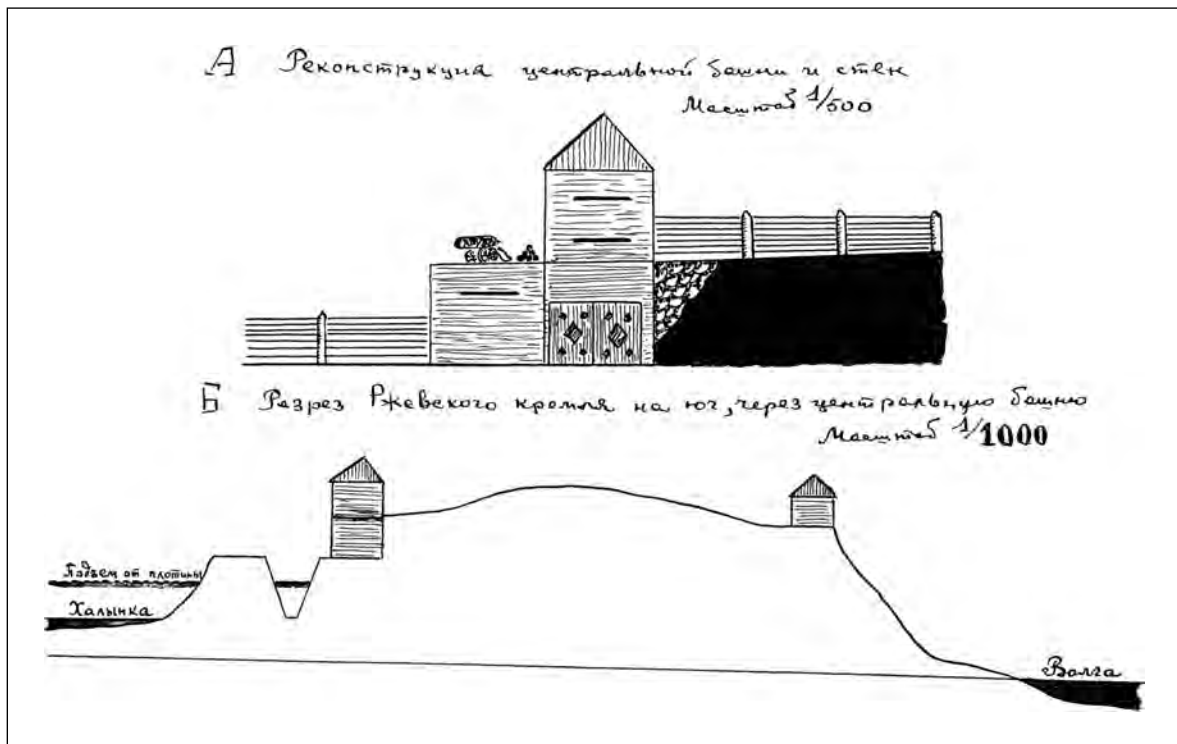 А Реконструкция центральной башни и стен
Масштаб 1/500
Б Разрез Ржевского кремля на юг, через центральную башню
Масштаб 1/1000
Подъем от плотины
Халынка
Волга